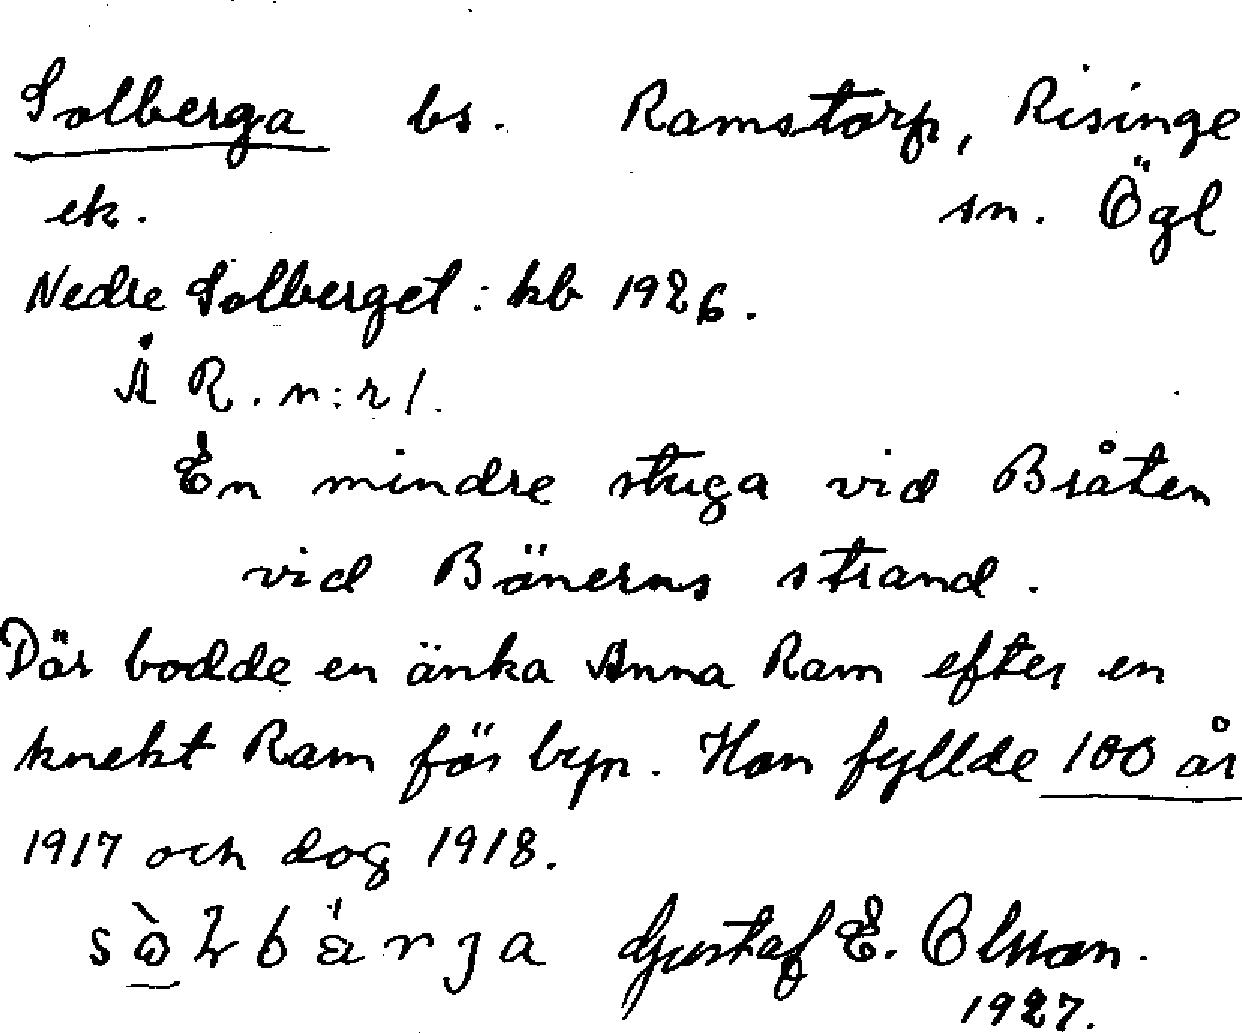 Solberga bs. Ramstorp, Risinge
ek. sn. Ögl
Nedre Solberget: kb 1926.
Å R. n:r 1.
En mindre stuga vid Bråten
vid Bönerns strand.
Där bodde en änka Anna Ram efter en
knekt Ram för byn. Hon fyllde 100 år
1917 och dog 1918.
Gustaf E. Olsson.
1927.